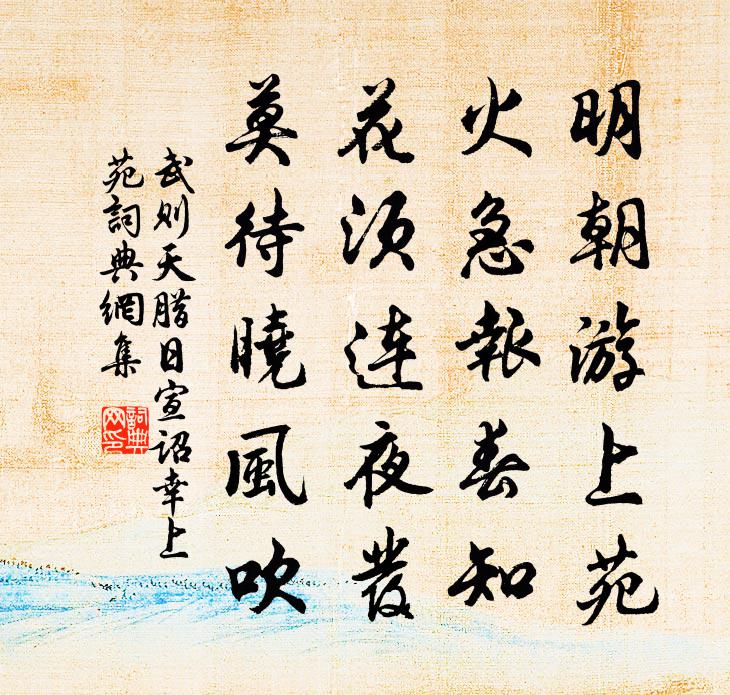 明朝游上苑
火急報春知
花須連夜發
莫待曉風吹
武則天臘日宣詔幸上
苑詞典網集
詞典
网印